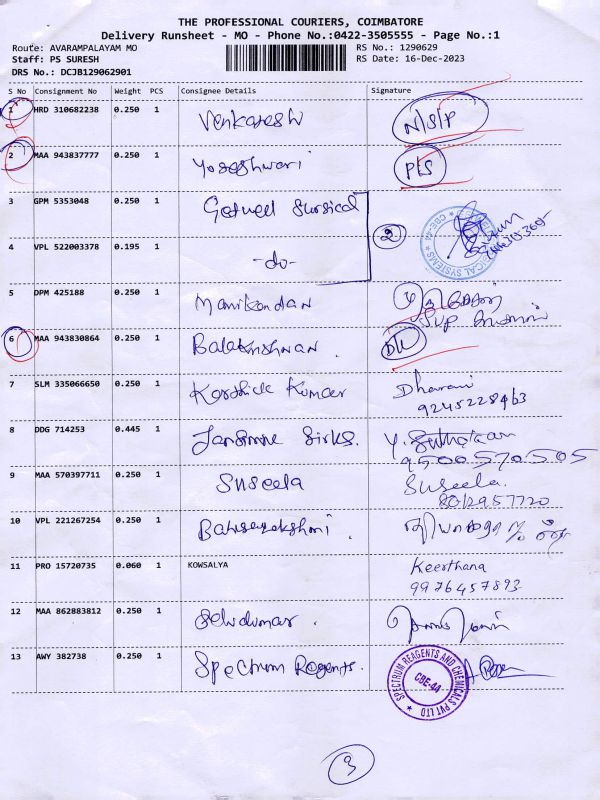 THE PROFESSIONAL COURIERS, COIMBATORE
Delivery Runsheet - MO - Phone No.:0422-3505555 - Page No.:1
Route: AVARAMPALAYAM MO
RS No.: 1290629
Staff: PS SURESH
RS Date: 16-Dec-2023
DRS No.: DCJB129062901
S No Consignment No Weight PCS Consignee Details Signature
1 HRD 310682238 0.250 1 Venkatesh N/S/P
2 MAA 943837777 0.250 1 Yogeshwari P/S
3 GPM 5353048 0.250 1 Surgical
2
4 VPL 522003378 0.195 1 -do-
CBE-44
5 DPM 425188 0.250 1 Manikandan
6 MAA 943830864 0.250 1 Balakrishnan. D/L
7 SLM 335066650 0.250 1 Karthick Kumar Dharani
9245228463
8 DDG 714253 0.445 1 Jansmine Silks.
9500570505
9 MAA 570397711 0.250 1 Suseela Suseela.
8012957720
10 VPL 221267254 0.250 1
11 PRO 15720735 0.060 1 KOWSALYA Keerthana
9976457893
12 MAA 862883812 0.250 1 Selvakumar.
13 AWY 382738 0.250 1 Spectrum Reagents.
SPECTRUM REAGENTS AND CHEMICALS PVT LTD
CBE-44
3